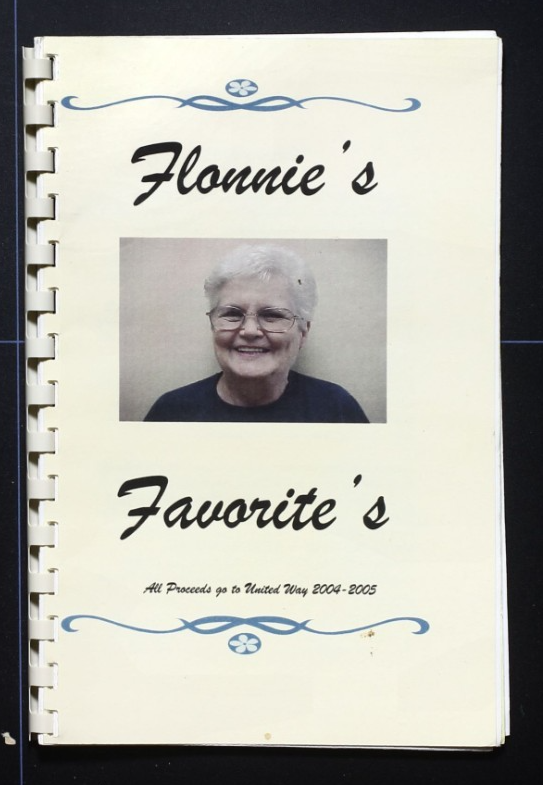 Flonnie's
Favorite's
All Proceeds go to United Way 2004-2005